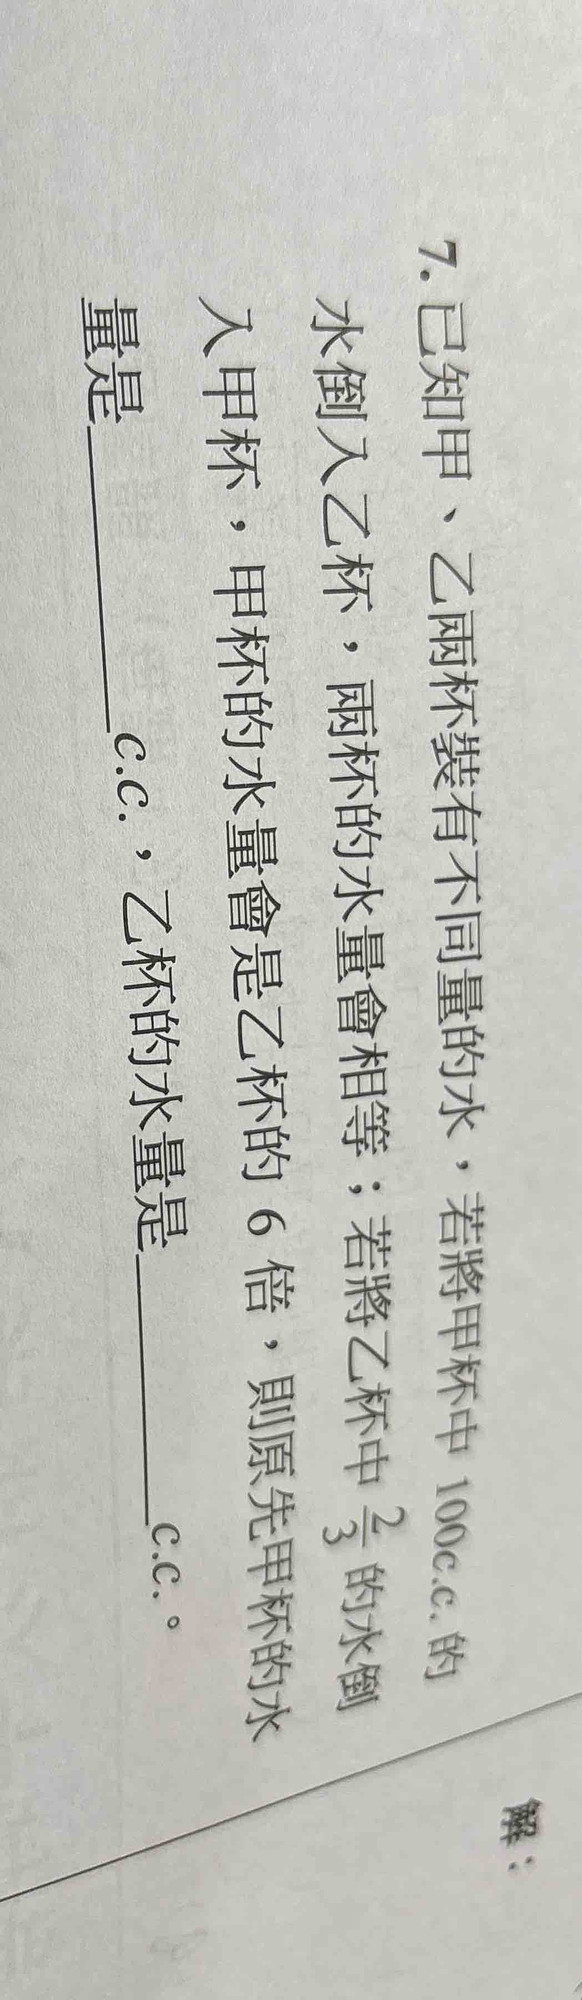 7. 已知甲、乙兩杯裝有不同量的水，若將甲杯中 100c.c. 的
水倒入乙杯，兩杯的水量會相等；若將乙杯中 2/3 的水倒
入甲杯，甲杯的水量會是乙杯的 6 倍，則原先甲杯的水
量是________c.c.，乙杯的水量是________c.c.。
解：